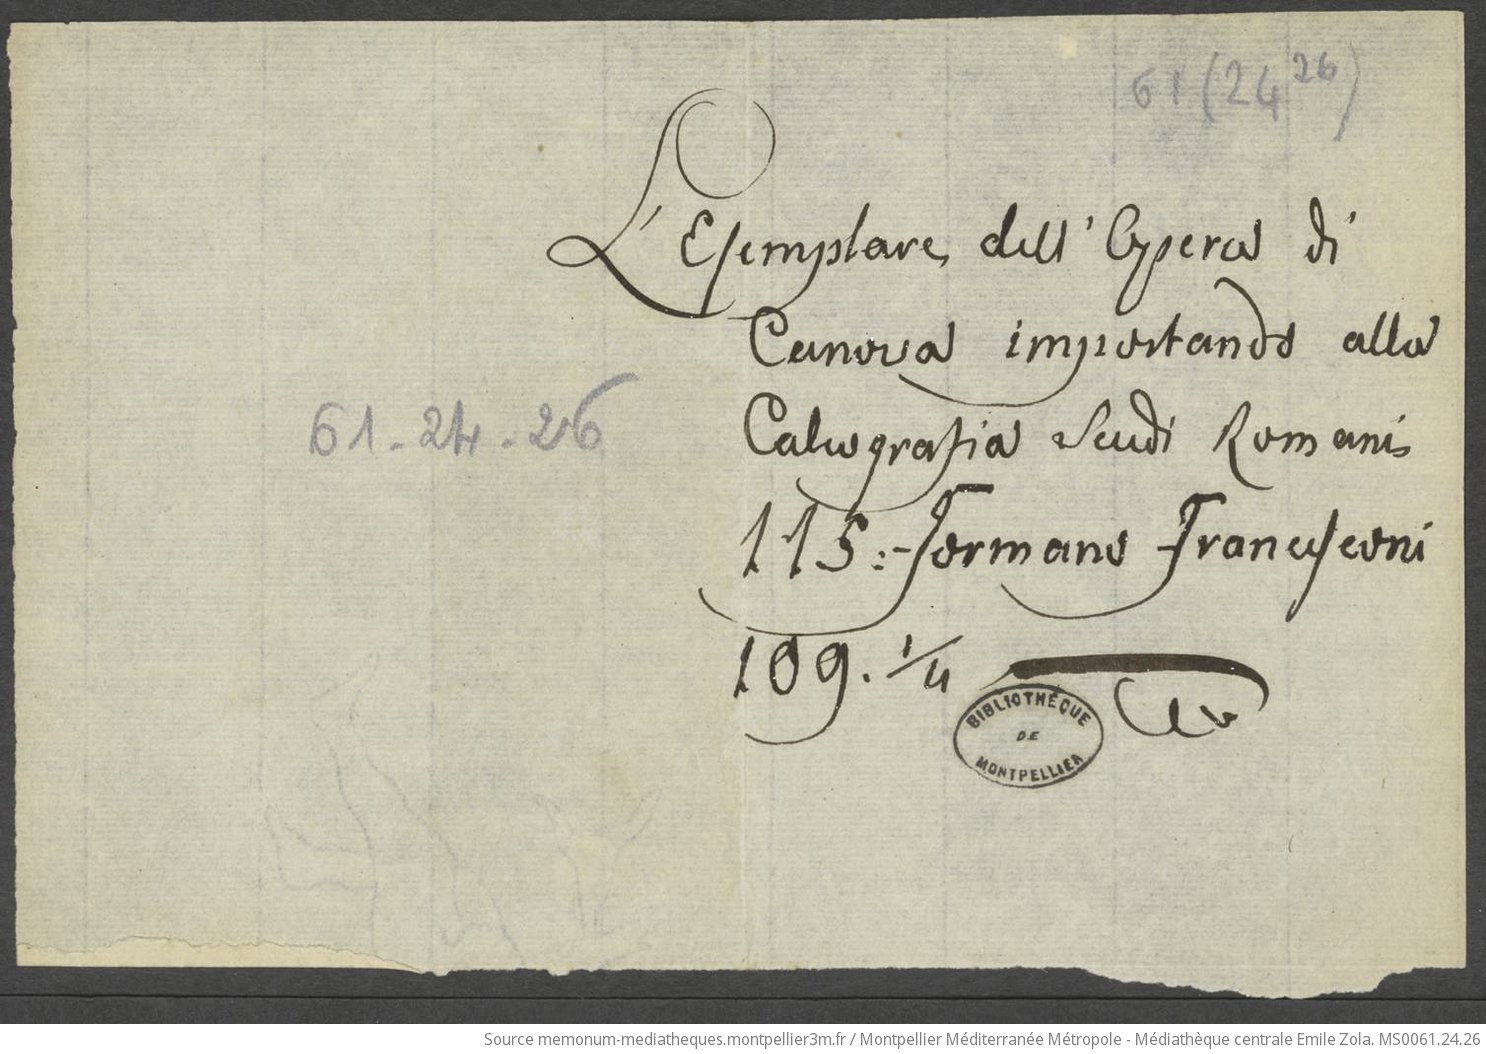 61 (24 26)
L'Esemplare dell'Opera di
Canova importando alla
Calcografia Scudi Romani
115: formano Francesconi
109. 1/4
61-24-26
BIBLIOTHÈQUE
DE
MONTPELLIER
Source memonum-mediatheques.montpellier3m.fr / Montpellier Méditerranée Métropole - Médiathèque centrale Emile Zola. MS0061.24.26